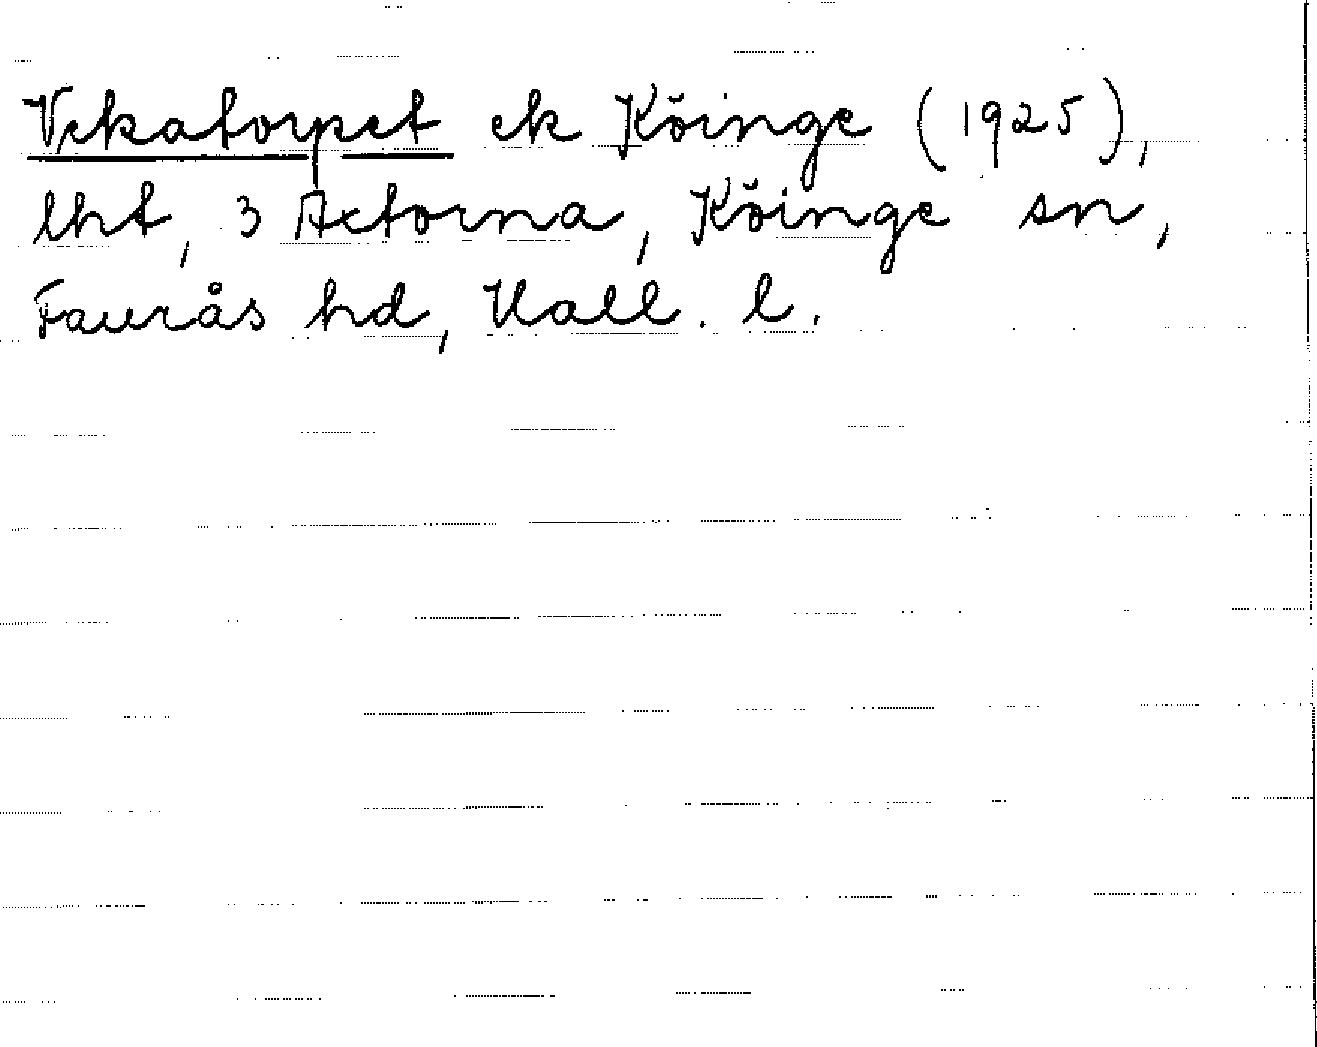 Vekatorpet ek Köinge (1925),
lht, 3 Axtorna, Köinge sn,
Faurås hd, Hall. l.